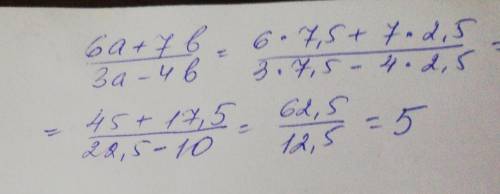 (6a + 7b)/(3a - 4b) = (6 * 7,5 + 7 * 2,5)/(3 * 7,5 - 4 * 2,5) =
= (45 + 17,5)/(22,5 - 10) = 62,5/12,5 = 5